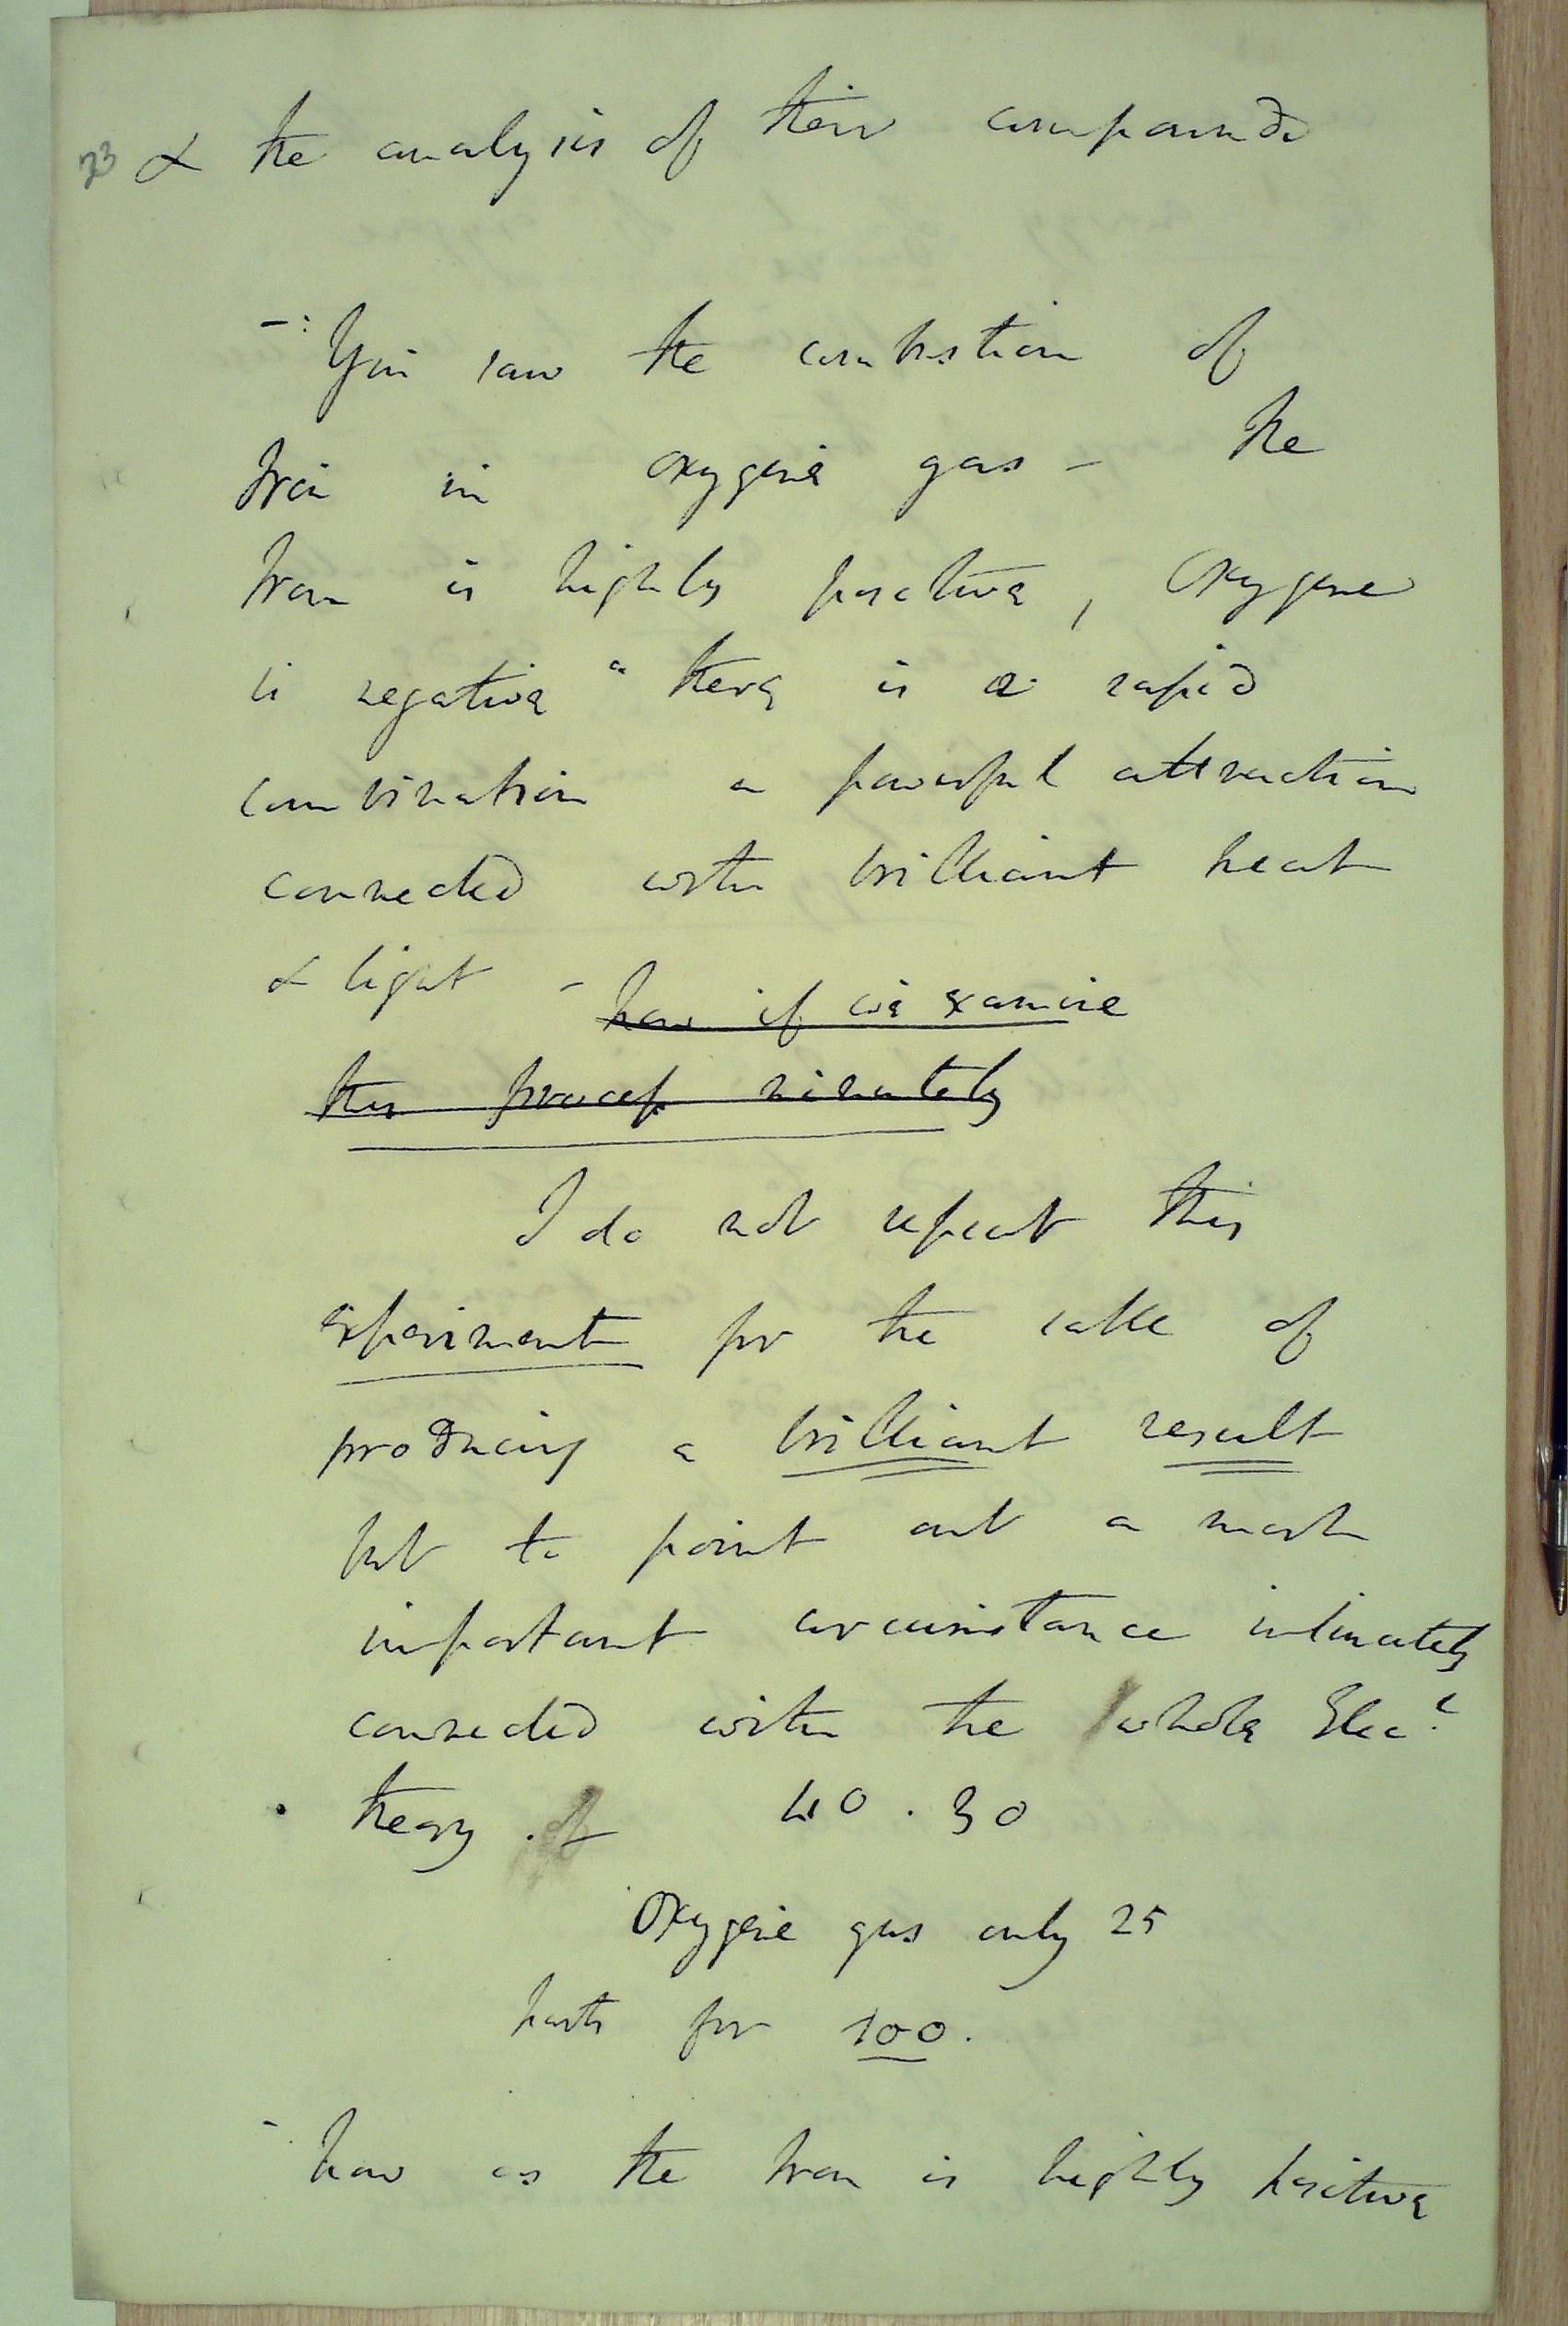 73 & the analysis of their compounds
-: You saw the combustion of
Iron in oxygene gas - the
Iron is highly positive, Oxygene
is negative " there is a rapid
combination a powerful attraction
connected with brilliant heat
& light - Now if we examine
this process minutely
I do not repeat this
experiment for the sake of
producing a brilliant result
but to point out a most
important circumstance intimately
connected with the whole Elec.l
theory. of 40.30
Oxygene gas only 25
parts for 100.
- Now as the Iron is highly positive